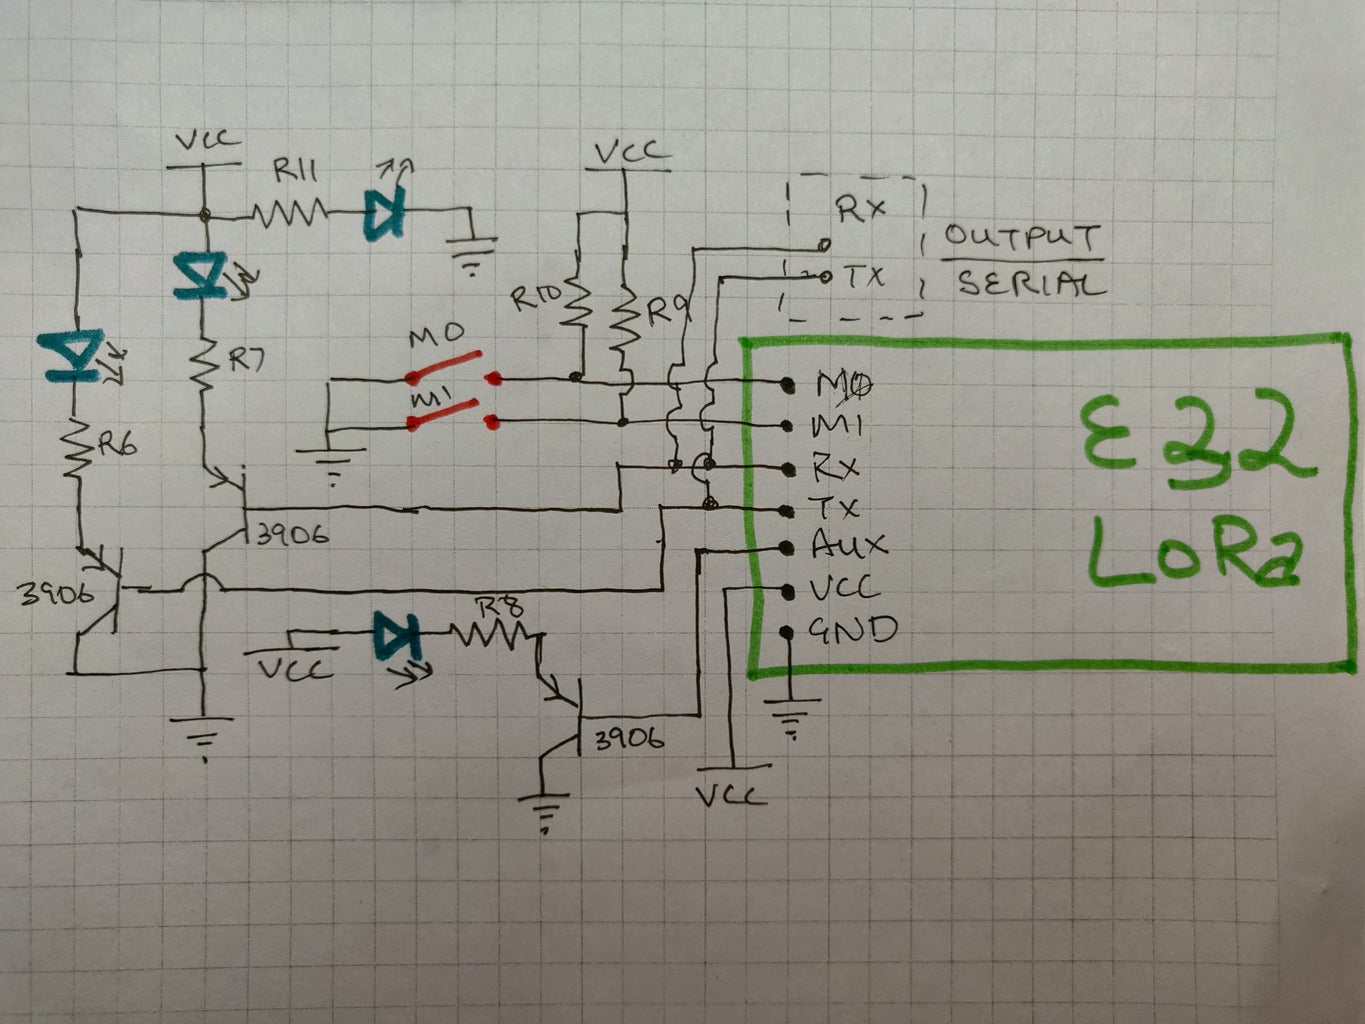 VCC
R11
VCC
RX
OUTPUT
SERIAL
TX
R10
R9
M0
R7
M1
M0
M1
E32
R6
RX
3906
TX
AUX
LoRa
3906
VCC
R8
GND
VCC
3906
VCC